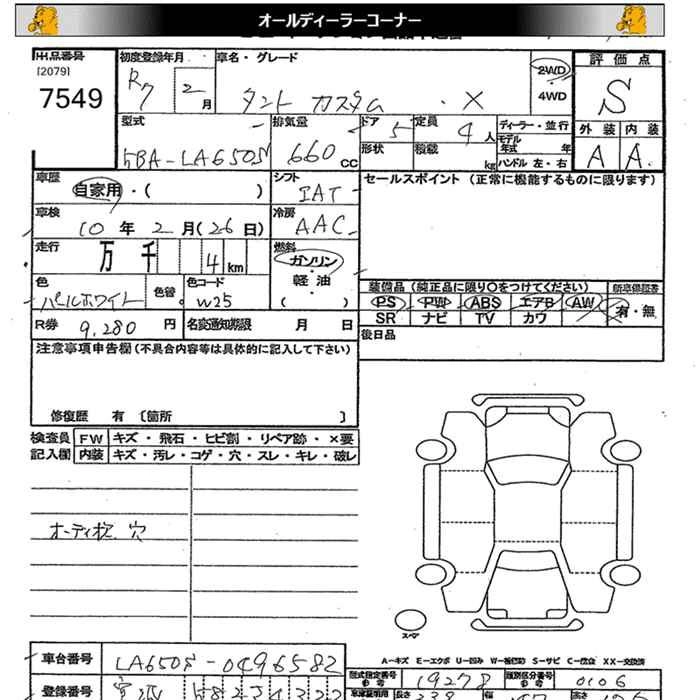 オールディーラーコーナー
出品番号 初度登録年月 車名・グレード 評価点
[2079]
7549 R7 2月 タント カスタム ・ X 2WD S
・4WD
外装 内装
A A
型式 排気量 ドア 定員 ディーラー・並行
5BA-LA650S 660cc 5 4人 モデル年式 年
形状 積載 kg ハンドル 左・右
車歴 シフト セールスポイント(正常に機能するものに限ります)
自家用・( ) IAT
車検 冷房
10年2月(26日) AAC
走行 燃料
万 千 4km ガソリン
・
軽油
色 色替 色コード ( )
パールホワイト W25
装備品(純正品に限り○をつけてください) 新車保証書
PS PW ABS エアB AW 有・無
SR ナビ TV カワ
R券 9,280円 名変通知期限 月 日
後日品
注意事項申告欄(不具合内容等は具体的に記入して下さい)
修復歴 有 〔箇所 〕
検査員 FW キズ・飛石・ヒビ割・リペア跡・×要
記入欄 内装 キズ・汚レ・コゲ・穴・スレ・キレ・破レ
穴
スペア
A-キズ E-エクボ U-凹み W-補修跡 S-サビ C-腐食 XX-交換済
車台番号 LA650S-0496582
型式指定番号 参考 19278 類別区分番号 参考 0106
登録番号
長さ 幅 高さ